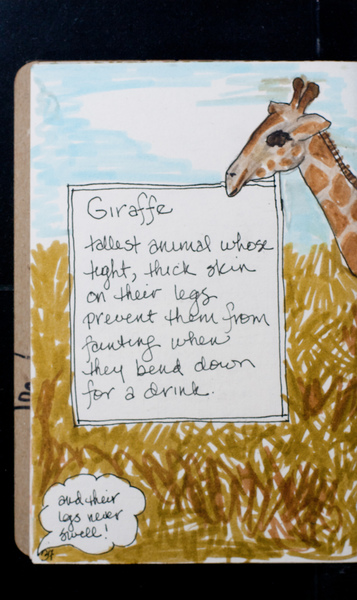 Giraffe
tallest animal whose
tight, thick skin
on their legs
prevent them from
fainting when
they bend down
for a drink.
and their
legs never
swell!
37